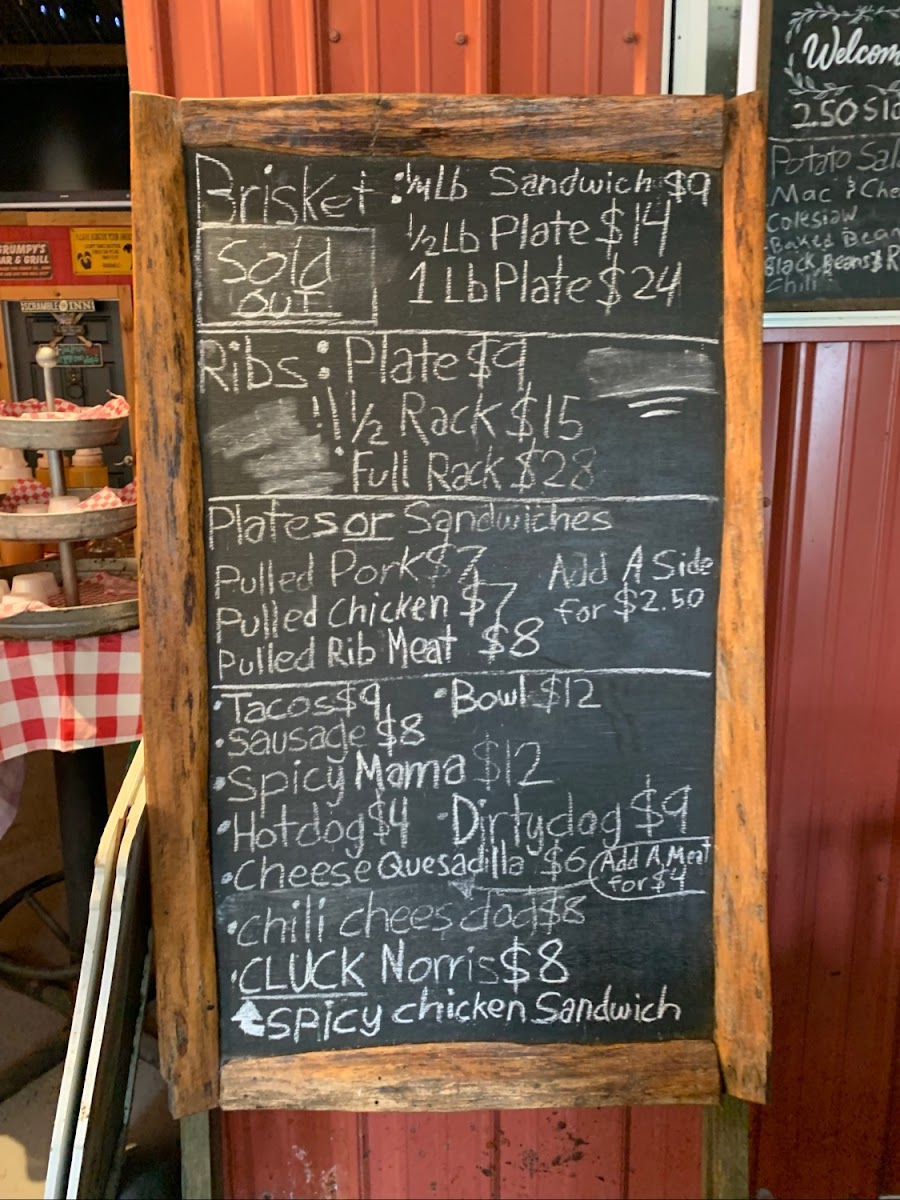 Brisket : 1/4 lb Sandwich $9
Sold out
1/2 Lb Plate $14
1 Lb Plate $24
Ribs : Plate $9
1/2 Rack $15
Full Rack $28
Plates or Sandwiches
Pulled Pork $7
Pulled Chicken $7
Pulled Rib Meat $8
Add A Side
for $2.50
• Tacos $9 • Bowl $12
• Sausage $8
• Spicy Mama $12
• Hotdog $4 • Dirtydog $9
• Cheese Quesadilla $6
Add A Meat
for $4
• chili chees dog $8
• CLUCK Norris $8
spicy chicken Sandwich
2.50
Potato
Mac &
Coleslaw
Baked
Black Beans &
Chili
GRUMPY'S
BAR & GRILL
SCRAMBLE INN